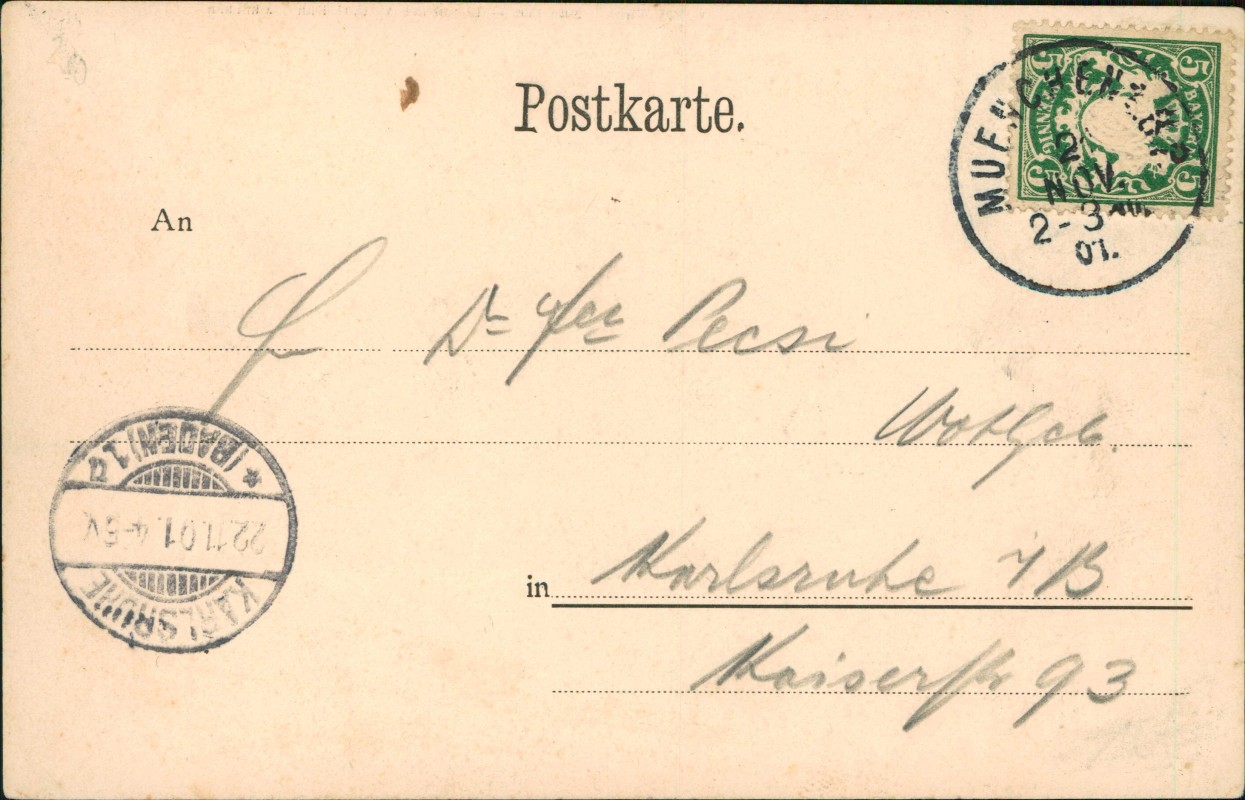 Postkarte.
MUENCHEN
2
NOV.
2-3
01.
5 5
5 5
An
Dr
Pecsi
Wohlgeb.
in Karlsruhe i/B
Kaiserstr 93
* (BADEN) 1 a
22.11.01. 4-5 V
KARLSRUHE